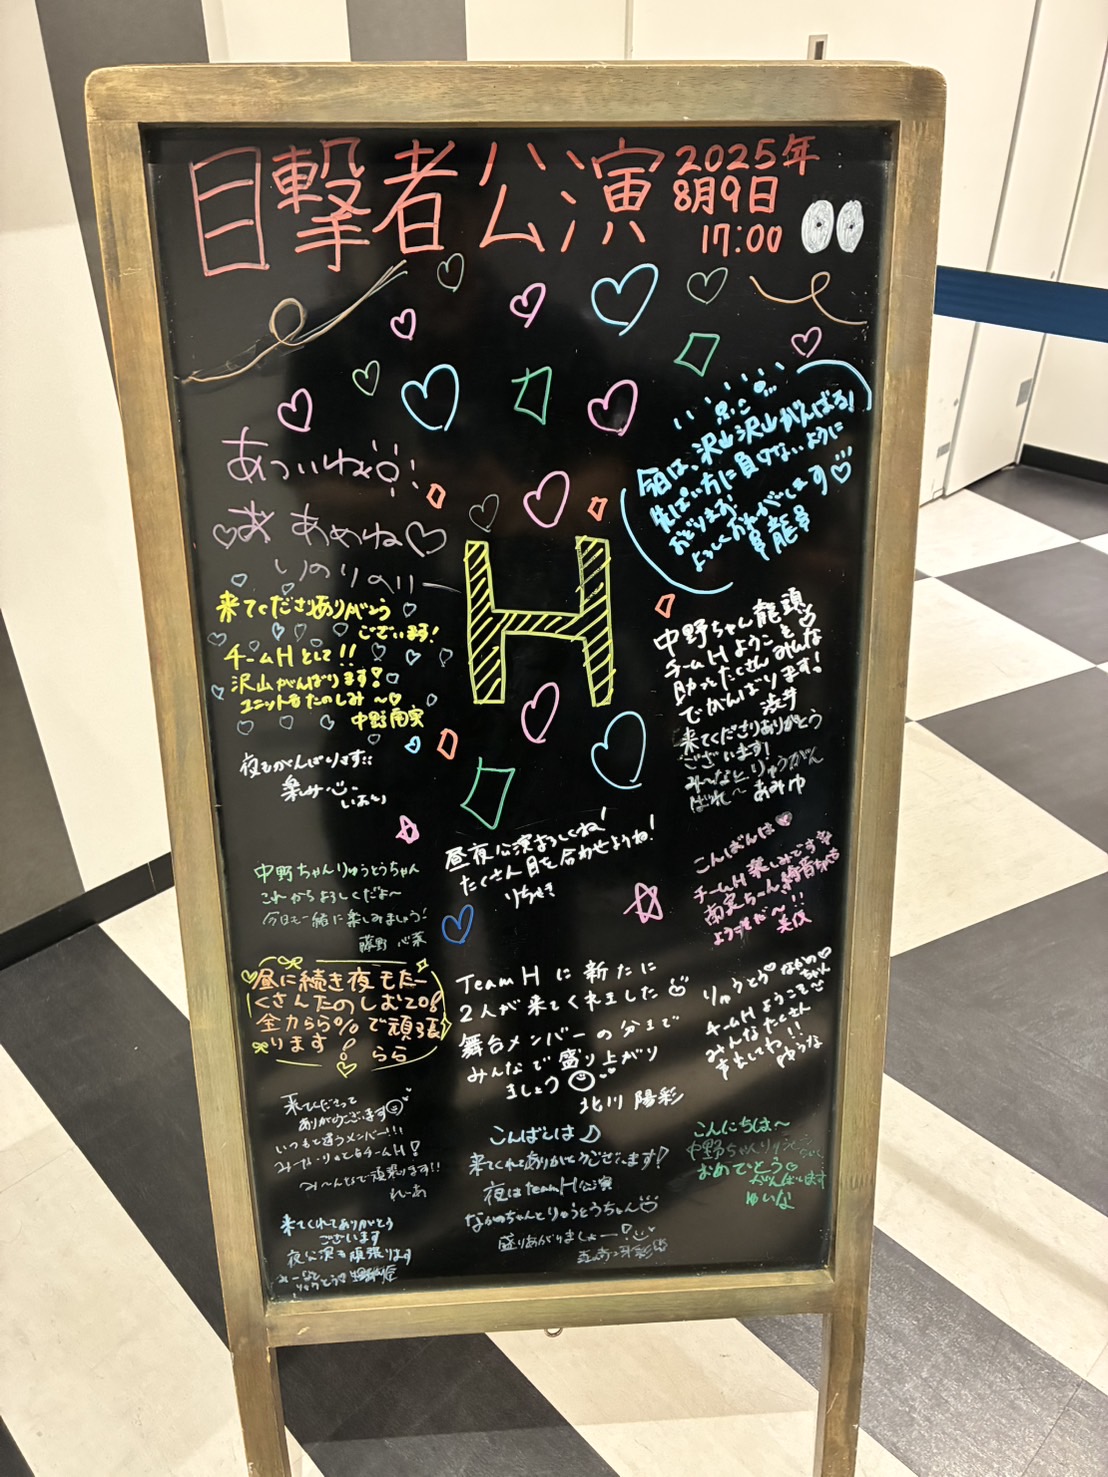 目撃者公演
2025年
8月9日
17:00
あついね
あ あめね
いのりのりー
今日は、沢山沢山がんばる!
先ぱい方に負けないように
おどります
よろしくおねがいします
龍
来てくださりありがとう
ございます!
チームHとして!!
沢山がんばります!
ユニットもたのしみ〜
中野南実
H
中野ちゃん龍頭
チームHようこそ
助っとたくさんみんな
でがんばります!
渋井
来てくださりありがとう
ございます!
み〜なとりゅうがん
ばれ〜 あみゆ
夜もがんばります
いおり
昼夜公演よろしくね!
たくさん目を合わせようね!
りちさき
こんばんは
チームH楽しみです
南実ちゃん 綺音ちゃん
ようこそだ〜!!
美伎
中野ちゃんりゅうとうちゃん
これからよろしくだよ〜
今日も一緒に楽しみましょう!
藤野 心菜
昼に続き夜もたー
くさんたのしむぞ
全力らら%で頑張
ります
らら
Team H に新たに
2人が来てくれました
舞台メンバーの分まで
みんなで盛り上がり
ましょう
北川 陽彩
りゅうとう なかの
ちゃん
チームHようこそ
みんなたくさん
声出してね!!
ゆうな
来てくださって
ありがとうございます
いつもと違うメンバー!!!
み〜んなで頑張ります!!
れいあ
こんばんは♪
来てくれてありがとうございます!
夜はteamH公演
なかのちゃんとりゅうとうちゃん
盛りあがりましょー!
こんにちは〜
中野ちゃんりゅうとうちゃん
おめでとう
がんばります
ゆいな
来てくれてありがとう
ございます
夜公演も頑張ります